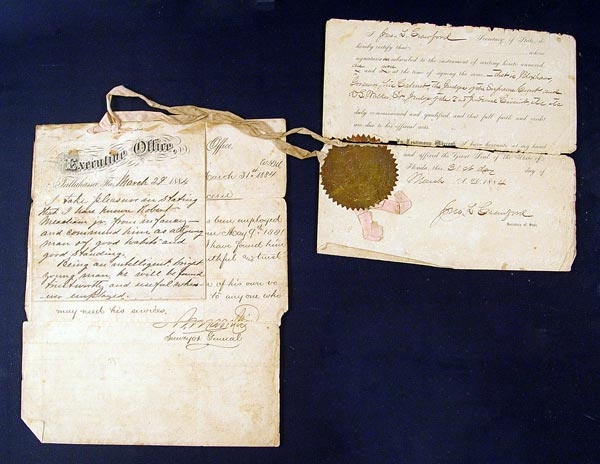 Executive Office,
Tallahassee, Fla., March 29, 1884
I take pleasure in stating
that I have known Robert
Meacham jr. from infancy—
and commend him as a young
man of good habits and
good standing.
Being an intelligent bright
young man, he will be found
trustworthy and useful when-
ever employed.
Office
March 31st 1884
been employed
May 9th 1881
I have found him
faithful and trust
of his own
to any one who
may need his services,
Surveyor General
I Jno. L. Crawford Secretary of State, do
hereby certify that whose
signatures subscribed to the instrument of writing hereto annexed
and at the time of signing the same,—that is Bloxham
Governor, his Cabinet, the Judges of the Supreme Court and
Judge of the 2nd Judicial Circuit,
duly commissioned and qualified, and that full faith and credit
are due to his official acts.
In Testimony Whereof, I have hereunto set my hand
and affixed the Great Seal of the State of
Florida, this 31st day day of
March A.D. 1884
Jno L Crawford
Secretary of State.